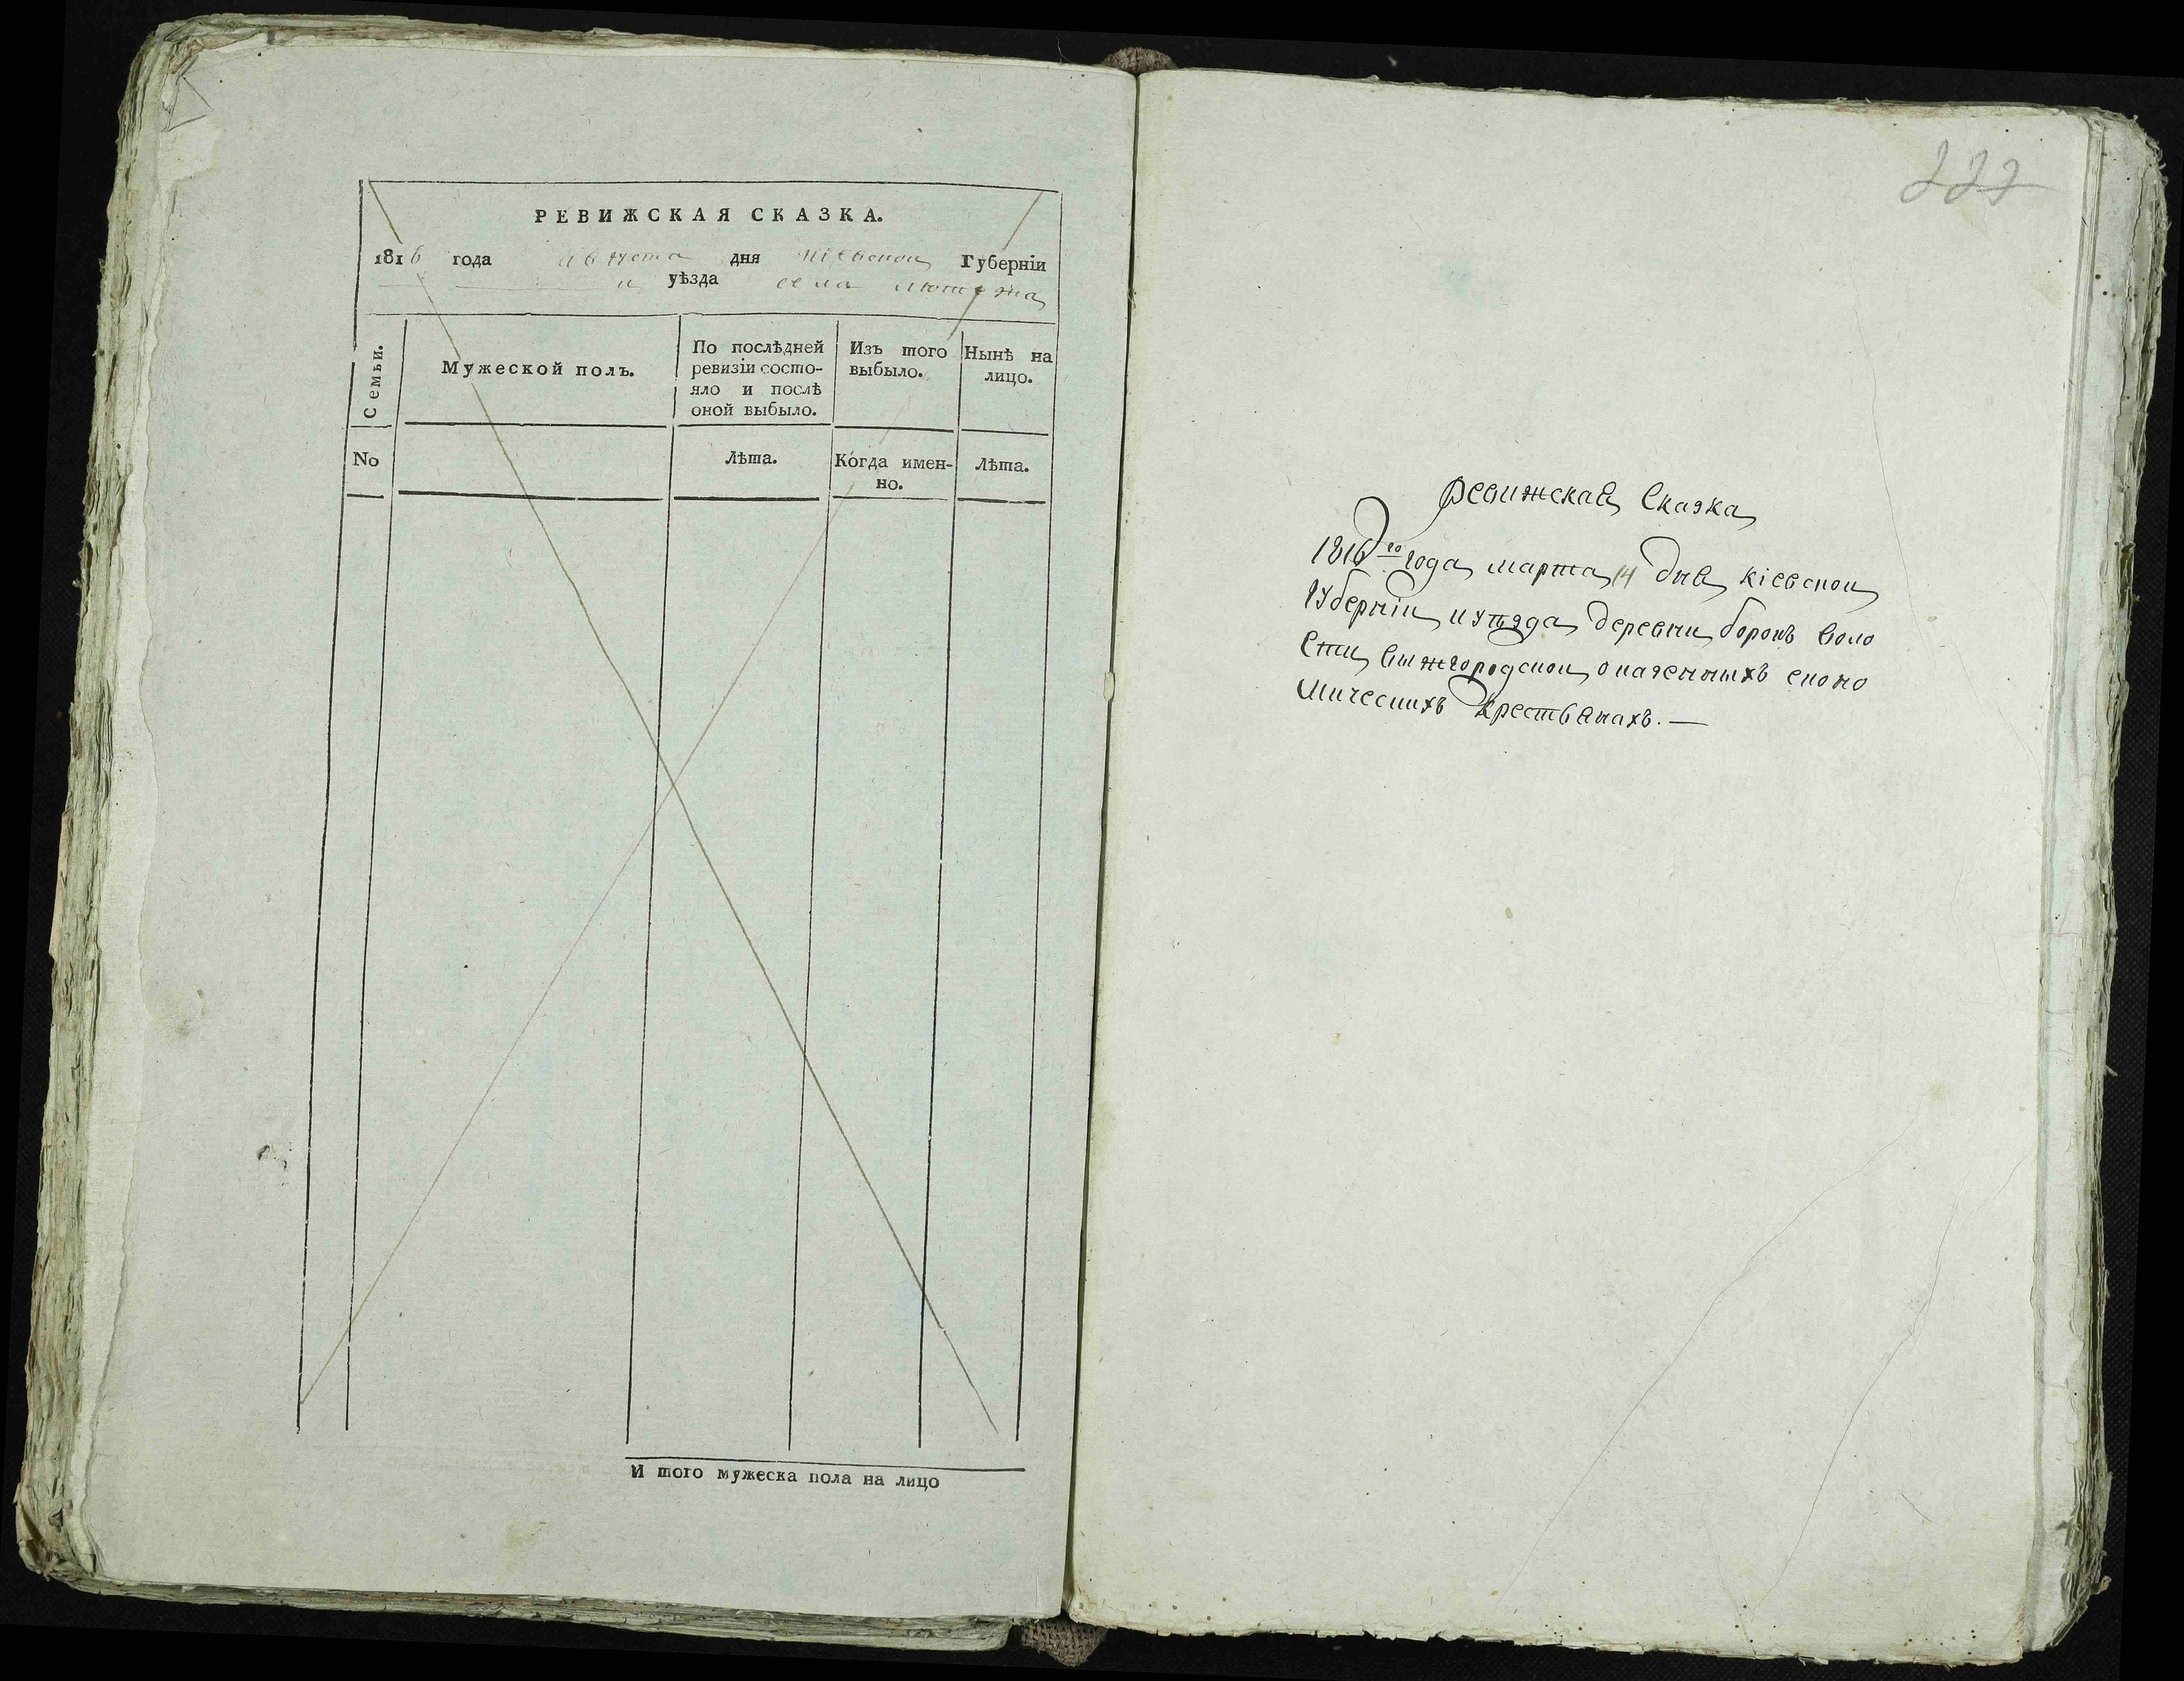 РЕВИЖСКАЯ СКАЗКА.
1816 года августа дня кіевской Губерніи
и уѣзда села лютежа
Семьи.
Мужеской полъ.
По послѣдней
ревизіи состо-
яло и послѣ
оной выбыло.
Изъ того
выбыло.
Нынѣ на
лицо.
No
Лѣта.
Когда имен-
но.
Лѣта.
И того мужеска пола на лицо
222
Ревижская Сказка
1816го года марта 14 дня кіевской
Губерніи и уѣзда деревни борокъ воло
сти вышгородской о казенныхъ еконо
мическихъ крестьянахъ. —